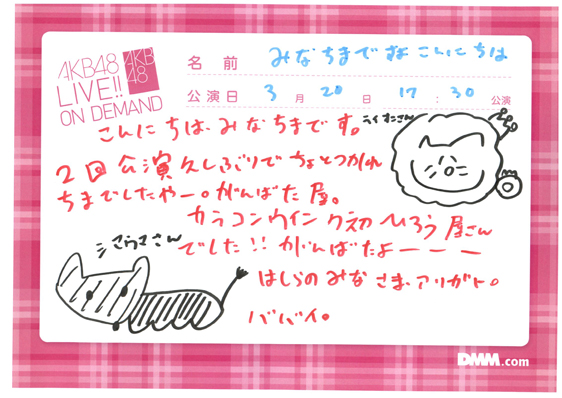 AKB48
LIVE!!
ON DEMAND
AKB
48
名前 みなちまですよこんにちは
公演日 3月20日 17:30公演
こんにちは、みなちまです。
ライオンさん
2回公演久しぶりでちょとつかれ
ちまでしたやー。がんばた屋。
カラコンウインク ひろう屋さん
シマウマさん
でした!!がんばたよーーー
はしらのみなさま、アリガト。
バババイ。
DMM.com